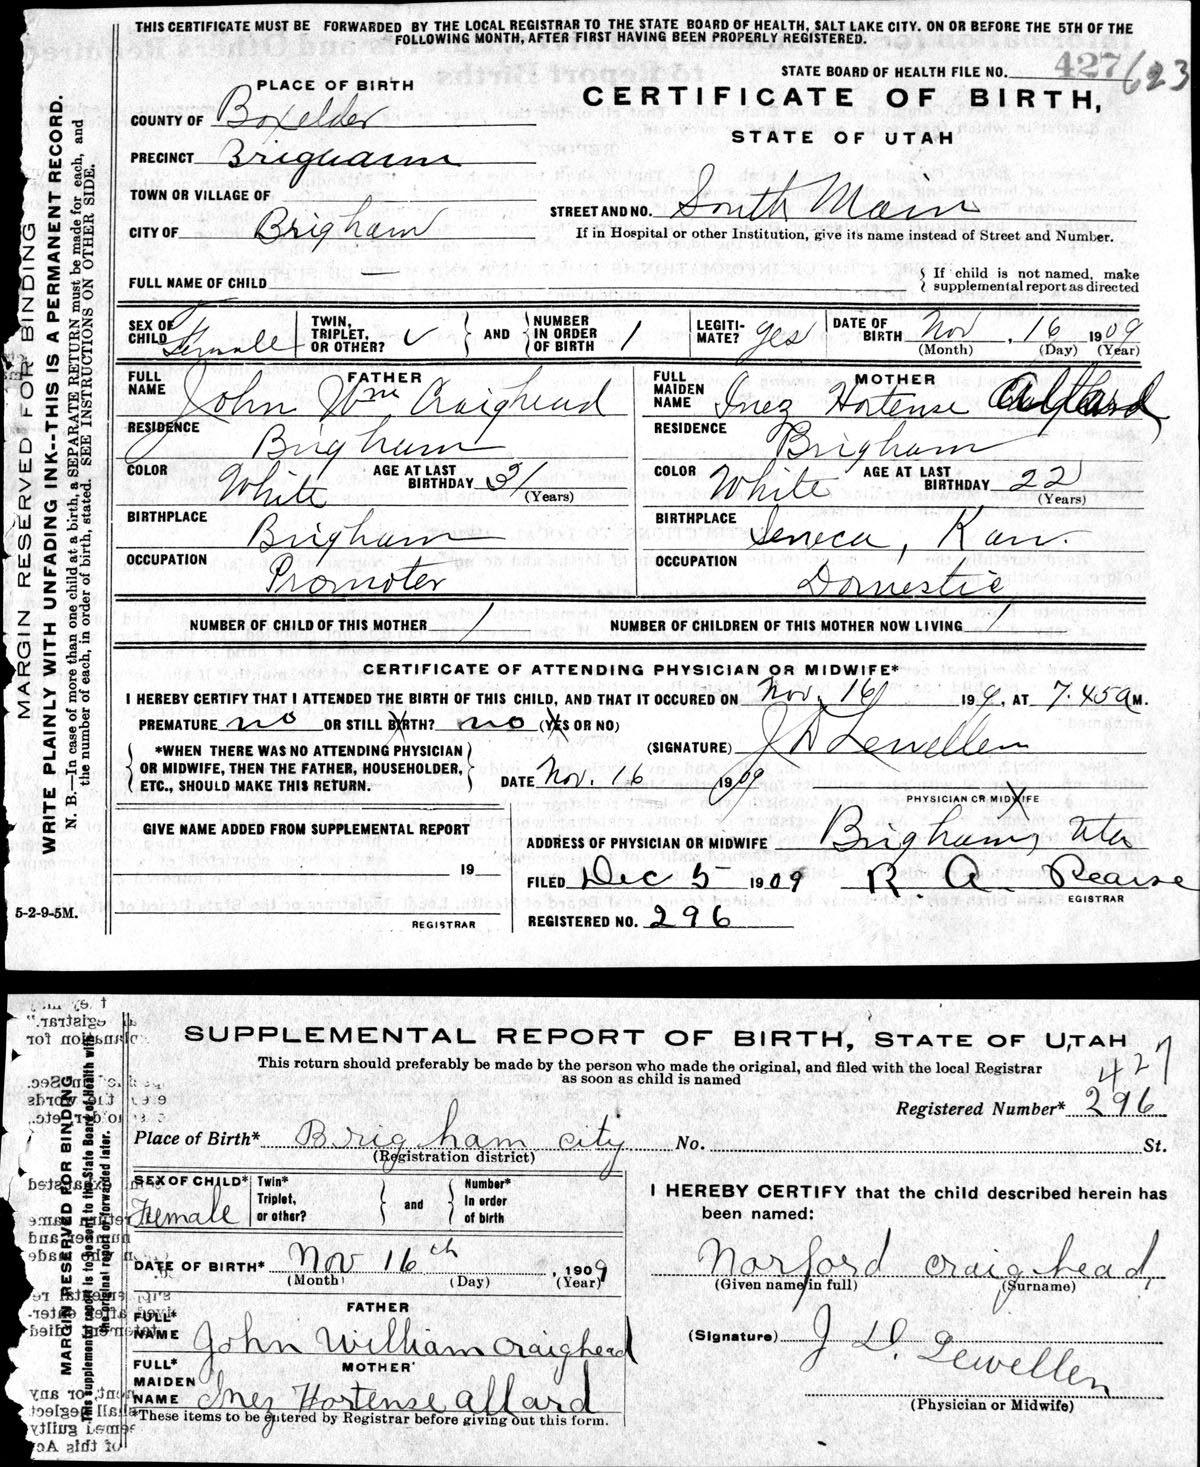 THIS CERTIFICATE MUST BE FORWARDED BY THE LOCAL REGISTRAR TO THE STATE BOARD OF HEALTH, SALT LAKE CITY. ON OR BEFORE THE 5TH OF THE
FOLLOWING MONTH, AFTER FIRST HAVING BEEN PROPERLY REGISTERED.
STATE BOARD OF HEALTH FILE NO. 427/623
PLACE OF BIRTH
CERTIFICATE OF BIRTH,
STATE OF UTAH
COUNTY OF Boxelder
PRECINCT Brigham
TOWN OR VILLAGE OF
STREET AND NO. South Main
CITY OF Brigham
If in Hospital or other Institution, give its name instead of Street and Number.
FULL NAME OF CHILD
If child is not named, make
supplemental report as directed
SEX OF CHILD Female
TWIN, TRIPLET, OR OTHER? AND NUMBER IN ORDER OF BIRTH 1
LEGITIMATE? yes
DATE OF BIRTH Nov, 16 1909
(Month) (Day) (Year)
FATHER
FULL NAME John Wm Craighead
RESIDENCE Brigham
COLOR White AGE AT LAST BIRTHDAY 31 (Years)
BIRTHPLACE Brigham
OCCUPATION Promoter
MOTHER
FULL MAIDEN NAME Inez Hortense Allard
RESIDENCE Brigham
COLOR White AGE AT LAST BIRTHDAY 22 (Years)
BIRTHPLACE Seneca, Kan.
OCCUPATION Domestic
NUMBER OF CHILD OF THIS MOTHER 1 NUMBER OF CHILDREN OF THIS MOTHER NOW LIVING 1
CERTIFICATE OF ATTENDING PHYSICIAN OR MIDWIFE*
I HEREBY CERTIFY THAT I ATTENDED THE BIRTH OF THIS CHILD, AND THAT IT OCCURED ON Nov, 16 1909, AT 7.45 a M.
PREMATURE no OR STILL BIRTH? no (YES OR NO)
*WHEN THERE WAS NO ATTENDING PHYSICIAN
OR MIDWIFE, THEN THE FATHER, HOUSEHOLDER,
ETC., SHOULD MAKE THIS RETURN.
(SIGNATURE) J D Lewellen
DATE Nov. 16 1909
PHYSICIAN OR MIDWIFE
GIVE NAME ADDED FROM SUPPLEMENTAL REPORT
19
REGISTRAR
ADDRESS OF PHYSICIAN OR MIDWIFE Brigham, Uta
FILED Dec 5 1909 R. A. Pearse
EGISTRAR
REGISTERED NO. 296
MARGIN RESERVED FOR BINDING
WRITE PLAINLY WITH UNFADING INK--THIS IS A PERMANENT RECORD.
N. B.—In case of more than one child at a birth, a SEPARATE RETURN must be made for each, and
the number of each, in order of birth, stated. SEE INSTRUCTIONS ON OTHER SIDE.
5-2-9-5M.
SUPPLEMENTAL REPORT OF BIRTH, STATE OF UTAH
This return should preferably be made by the person who made the original, and filed with the local Registrar
as soon as child is named
427
Registered Number* 296
Place of Birth* Brigham city No. St.
(Registration district)
SEX OF CHILD* Female
Twin* Triplet, or other? and Number* In order of birth
DATE OF BIRTH* Nov 16th, 1909
(Month) (Day) (Year)
FATHER
FULL* NAME John William Craighead
MOTHER
FULL* MAIDEN NAME Inez Hortense Allard
*These items to be entered by Registrar before giving out this form.
I HEREBY CERTIFY that the child described herein has
been named:
Norford Craighead,
(Given name in full) (Surname)
(Signature) J D. Lewellen
(Physician or Midwife)
MARGIN RESERVED FOR BINDING
This supplemental report is to be sent to the State Board of Health with
the original report or forwarded later.